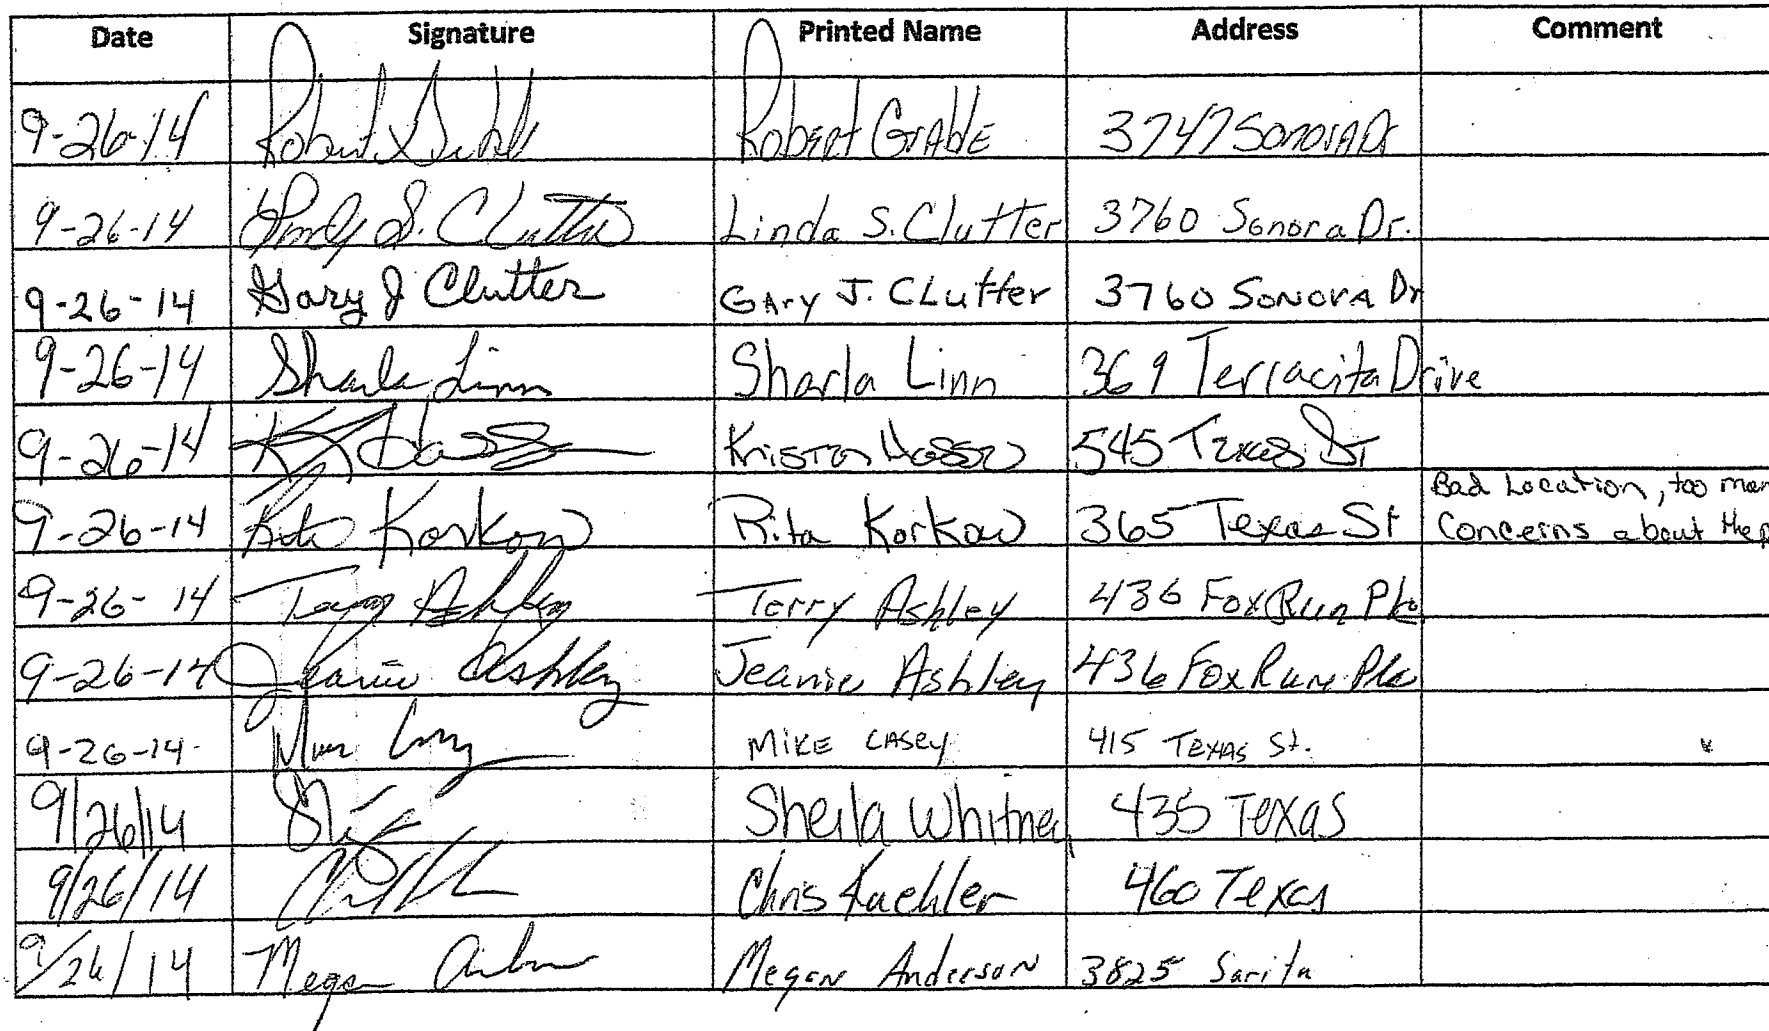 Date Signature Printed Name Address Comment
9-26-14 Robert Grable 3747 Sonora Dr
9-26-14 Lindy S. Clutter Linda S. Clutter 3760 Sonora Dr.
9-26-14 Gary J Clutter GAry J. CLutter 3760 SONORA Dr
9-26-14 Sharla Linn Sharla Linn 369 Terracita Drive
9-26-14 545 Texas St
Bad Location, too
9-26-14 Rita Korkow Rita Korkow 365 Texas St Concerns about the
9-26-14 Terry Ashley Terry Ashley 436 Fox Run Pk
9-26-14 Jeanie Ashley Jeanie Ashley 436 Fox Run
9-26-14 MIKE CASEY 415 TEXAS St.
9/26/14 Sheila Whitney 435 Texas
9/26/14 Chris Kaehler 460 Texas
9/26/14 Megan Megan Anderson 3825 Sarita